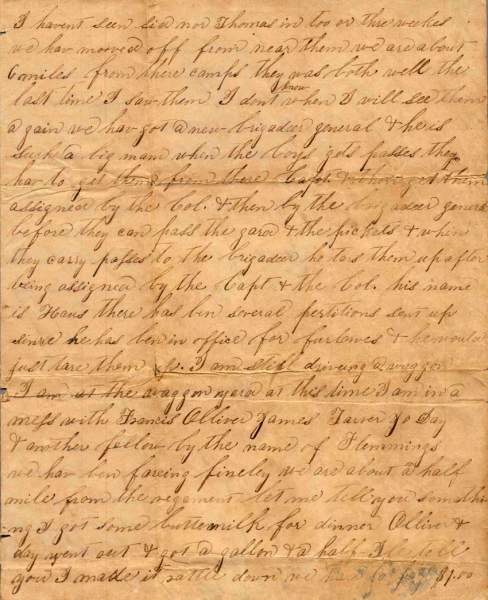 I havent seen sid nor Thomas in too or three weekes
we hav mooved off from near them we are about
6 miles from there camps they was both well the
last time I saw them I dont know when I will see them
a gain we hav got a new brigadeer general & he is
such a big mam when the boys gets passes they
hav to get them from there Capt. & then get them
assigned by the Col. & then by the brigadeer general
before they can pass the gard & the pickets & when
they carry passes to the brigadeer he tars them up after
being assigned by the Capt & the Col. his name
is Haus there has bin several pertitions sent up
sense he has ben in office for furlowes & he would
just tare them up. I am still driveing a waggon
I am at the waggon yard at this time I am in a
mess with Francis Olliver James Tarver Jo Day
& another feelow by the name of Flemmings
we hav ben fareing fineley we are about a half
mile from the regement let me tell you somethi
ng I got some buttermilk for dinner Olliver &
day went out & got a gallon & a half Ile tell
you I made it rattle down we had to pay $1.00